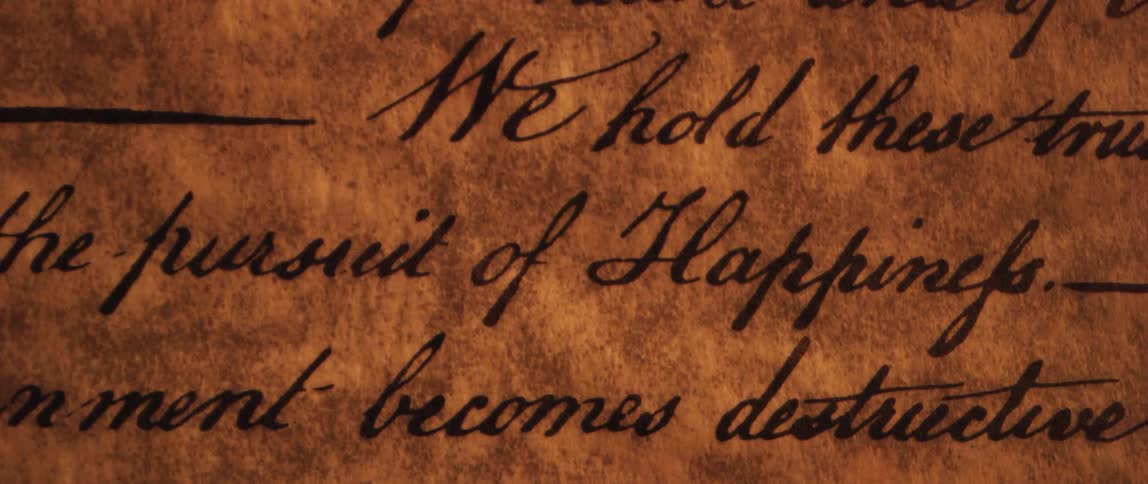 — We hold these
the pursuit of Happineſs. —
becomes destructive